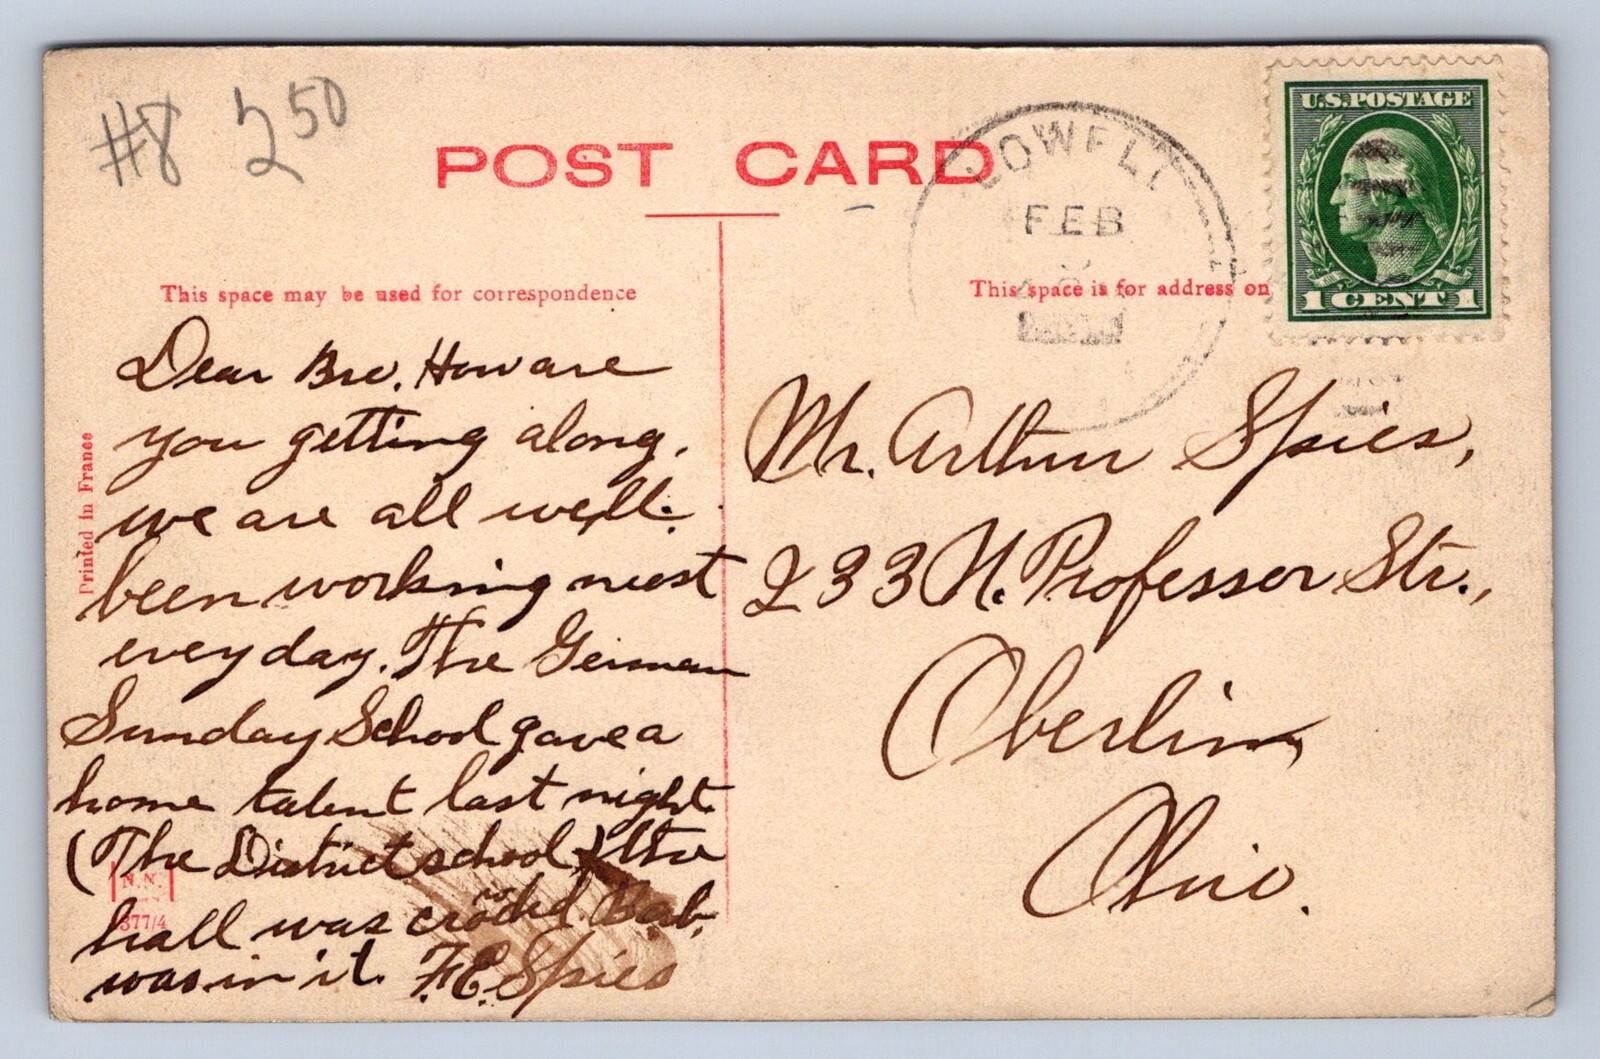 #8 2 50
POST CARD
LOWELL
FEB
U.S. POSTAGE
1 CENT 1
This space may be used for correspondence
This space is for address on
Printed in France
Dear Bro. How are
you getting along.
we are all well.
been working most
every day. The German
Sunday School gave a
home talent last night.
(The District school) the
hall was croded.
was in it. F.E. Spies
N.N.
377/4
Mr. Arthur Spies,
233 N. Professor Str.,
Oberlin,
Ohio.